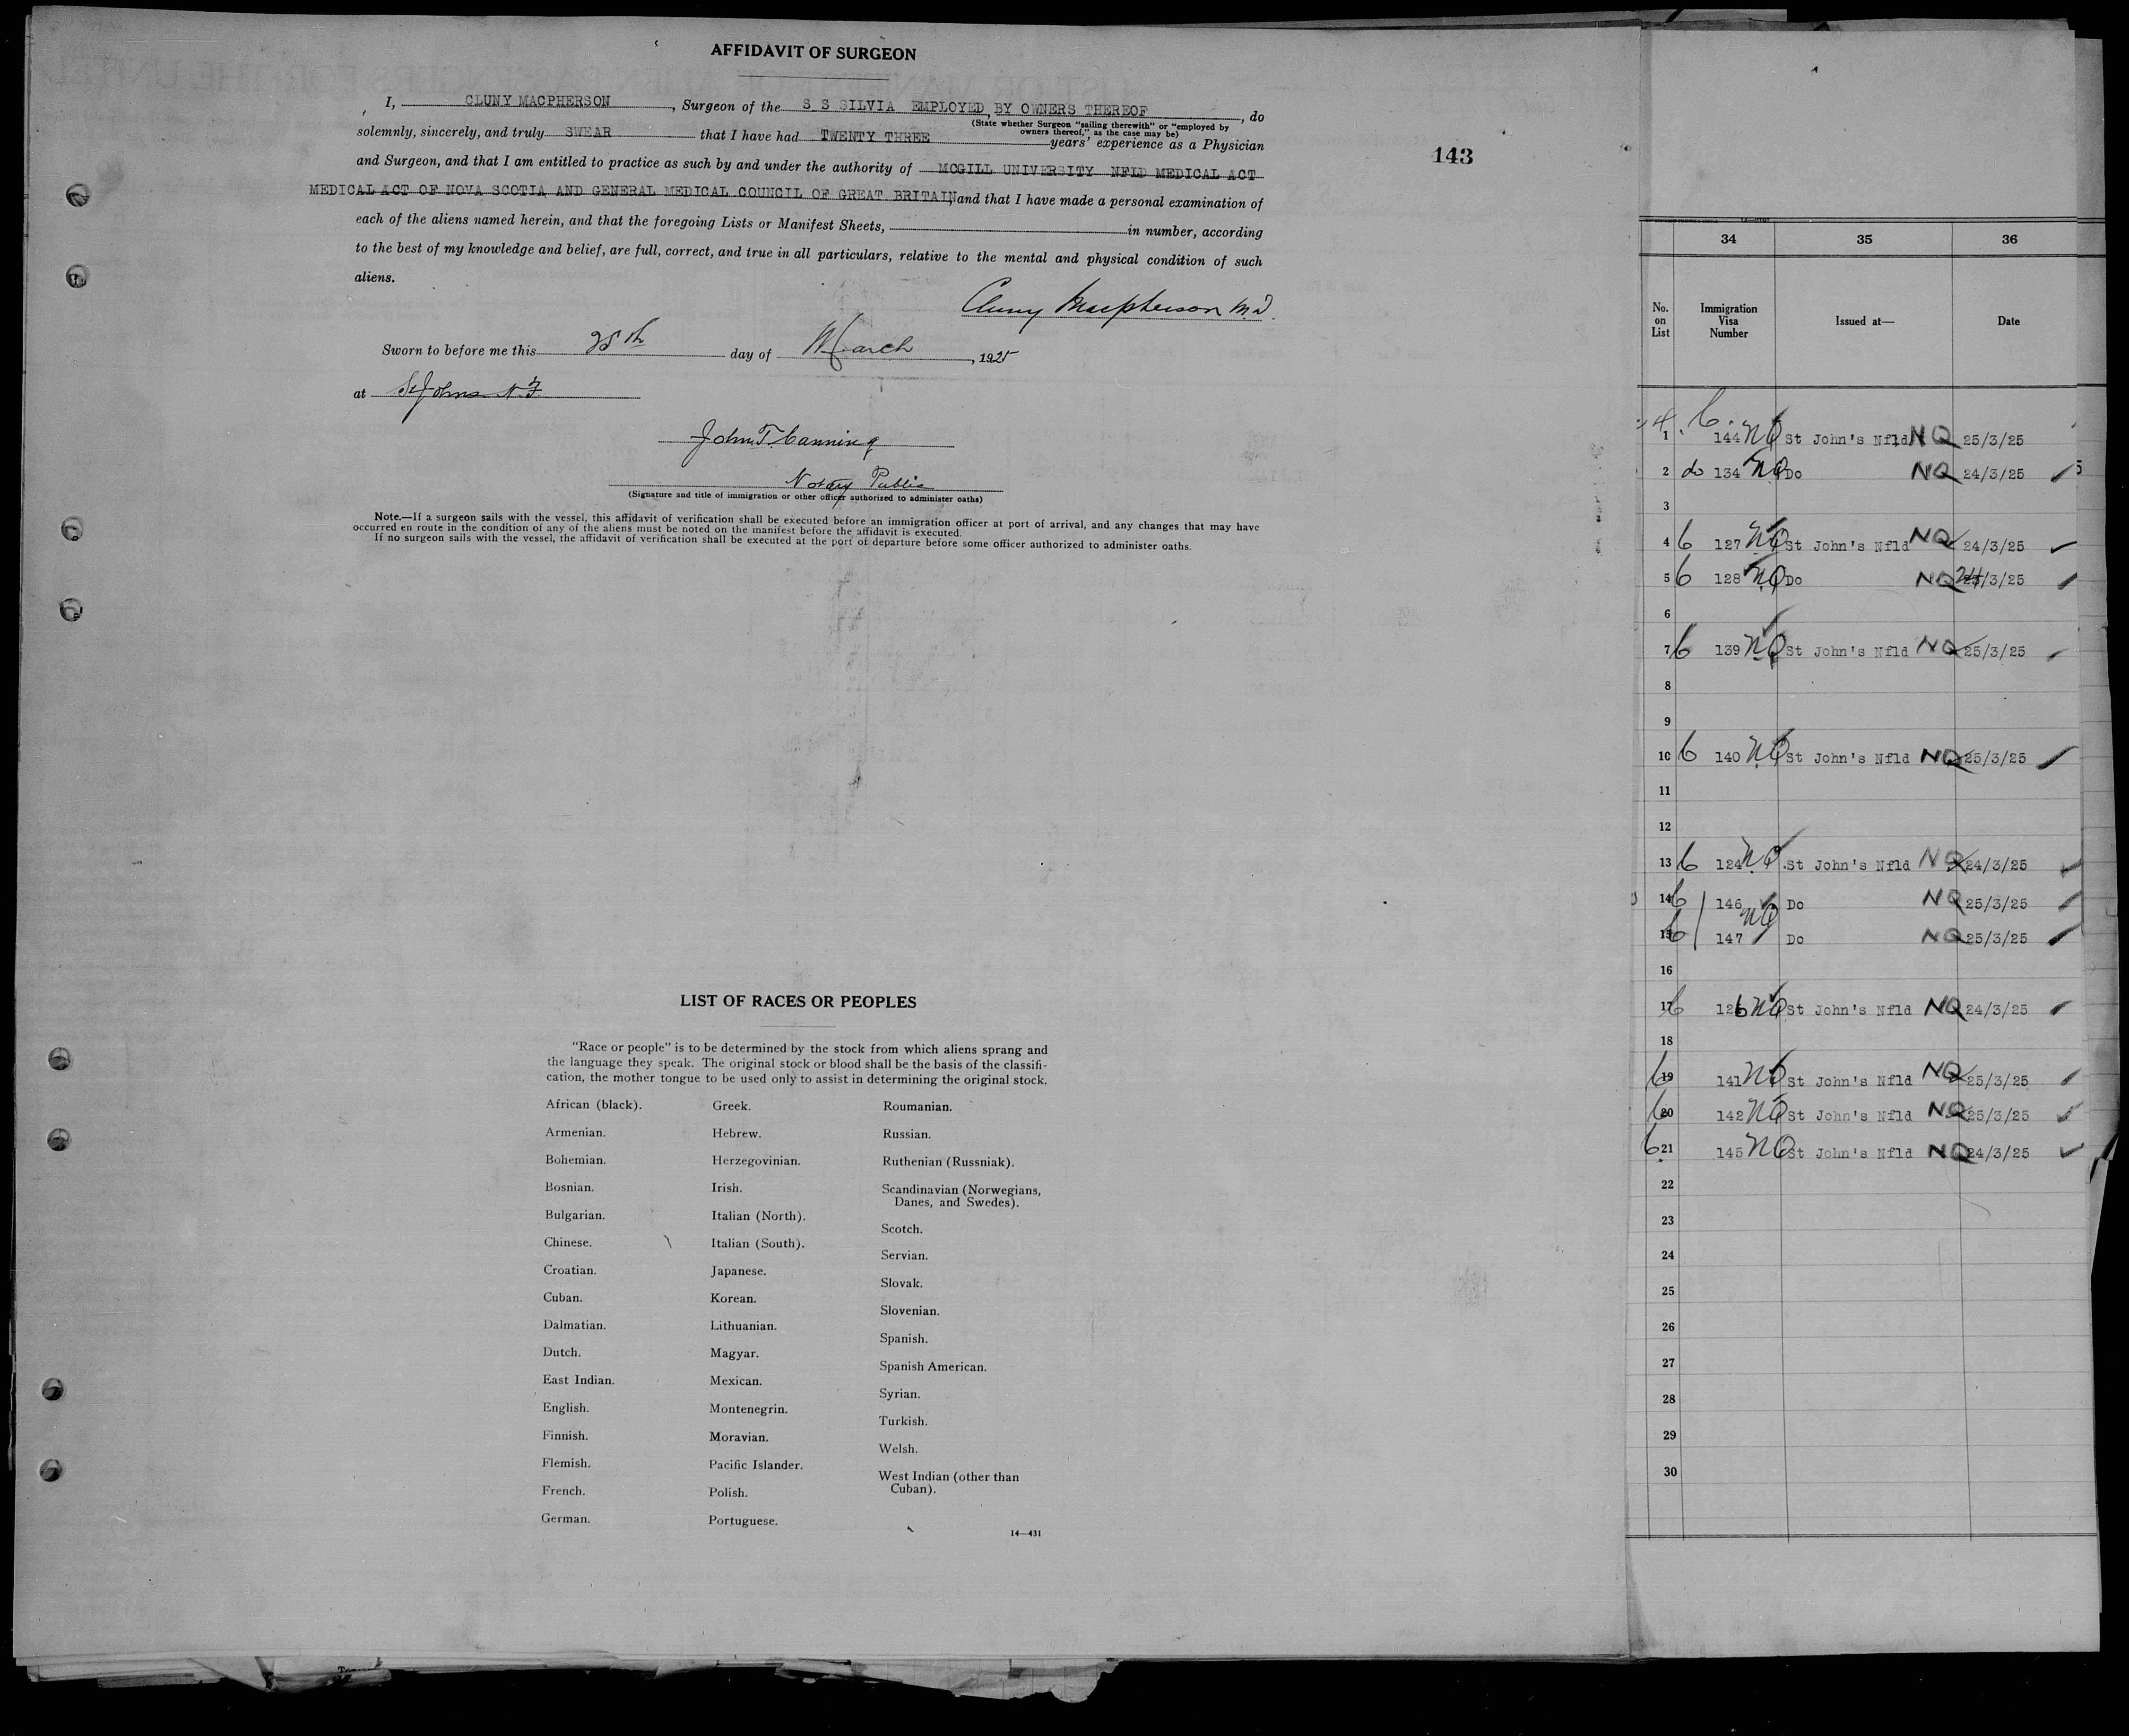 AFFIDAVIT OF SURGEON
I, CLUNY MACPHERSON, Surgeon of the S S SILVIA EMPLOYED, BY OWNERS THEREOF, do
(State whether Surgeon "sailing therewith" or "employed by
owners thereof," as the case may be)
solemnly, sincerely, and truly SWEAR that I have had TWENTY THREE years' experience as a Physician
and Surgeon, and that I am entitled to practice as such by and under the authority of MCGILL UNIVERSITY NFLD MEDICAL ACT
MEDICAL ACT OF NOVA SCOTIA AND GENERAL MEDICAL COUNCIL OF GREAT BRITAIN, and that I have made a personal examination of
each of the aliens named herein, and that the foregoing Lists or Manifest Sheets, in number, according
to the best of my knowledge and belief, are full, correct, and true in all particulars, relative to the mental and physical condition of such
aliens.
Cluny Macpherson M.D.
Sworn to before me this 25th day of March, 1925
at St Johns N.F.
John T. Canning
Notary Public
(Signature and title of immigration or other officer authorized to administer oaths)
Note.—If a surgeon sails with the vessel, this affidavit of verification shall be executed before an immigration officer at port of arrival, and any changes that may have
occurred en route in the condition of any of the aliens must be noted on the manifest before the affidavit is executed.
If no surgeon sails with the vessel, the affidavit of verification shall be executed at the port of departure before some officer authorized to administer oaths.
143
LIST OF RACES OR PEOPLES
"Race or people" is to be determined by the stock from which aliens sprang and
the language they speak. The original stock or blood shall be the basis of the classifi-
cation, the mother tongue to be used only to assist in determining the original stock.
African (black).
Armenian.
Bohemian.
Bosnian.
Bulgarian.
Chinese.
Croatian.
Cuban.
Dalmatian.
Dutch.
East Indian.
English.
Finnish.
Flemish.
French.
German.
Greek.
Hebrew.
Herzegovinian.
Irish.
Italian (North).
Italian (South).
Japanese.
Korean.
Lithuanian.
Magyar.
Mexican.
Montenegrin.
Moravian.
Pacific Islander.
Polish.
Portuguese.
Roumanian.
Russian.
Ruthenian (Russniak).
Scandinavian (Norwegians,
Danes, and Swedes).
Scotch.
Servian.
Slovak.
Slovenian.
Spanish.
Spanish American.
Syrian.
Turkish.
Welsh.
West Indian (other than
Cuban).
14—431
34 35 36
No.
on
List
Immigration
Visa
Number
Issued at—
Date
1 144 NQ St John's Nfld NQ 25/3/25
2 do 134 NQ Do NQ 24/3/25
3
4 6 127 NQ St John's Nfld NQ 24/3/25
5 6 128 NQ Do NQ 24/3/25
6
7 6 139 NQ St John's Nfld NQ 25/3/25
8
9
10 6 140 NQ St John's Nfld NQ 25/3/25
11
12
13 6 124 NQ St John's Nfld NQ 24/3/25
14 6 146 NQ Do NQ 25/3/25
15 6 147 Do NQ 25/3/25
16
17 6 126 NQ St John's Nfld NQ 24/3/25
18
19 6 141 NQ St John's Nfld NQ 25/3/25
20 6 142 NQ St John's Nfld NQ 25/3/25
21 6 145 NQ St John's Nfld NQ 24/3/25
22
23
24
25
26
27
28
29
30